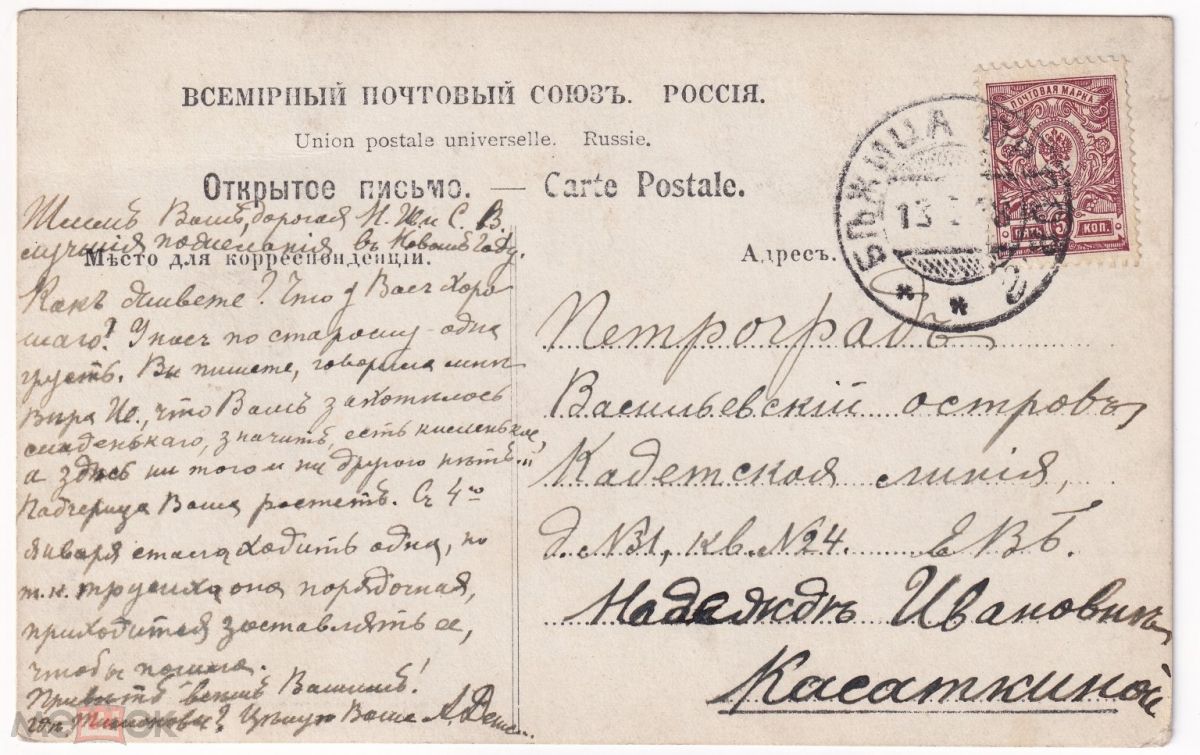 ВСЕМІРНЫЙ ПОЧТОВЫЙ СОЮЗЪ. РОССІЯ.
Union postale universelle. Russie.
Открытое письмо. — Carte Postale.
Мѣсто для корреспонденціи.
Адресъ.
ПОЧТОВАЯ МАРКА
5 КОП.
БѢЖИЦА
13
2
Шлемъ Вамъ, дорогая Н. И. и С. В.
лучшія пожеланія въ Новомъ Году.
Какъ живете? Что у Васъ хоро-
шаго? У насъ по старому – одна
грусть. Вы пишете, говорила мнѣ
Вѣра Ю., что Вамъ захотѣлось
сладенькаго, значитъ, есть кисленькое,
а здѣсь ни того и ни другого нѣтъ...
Падчерица Ваша растетъ. Съ 4го
января стала ходить одна, но
т.к. трусиха она порядочная,
приходится заставлять ее,
чтобы пошла.
Привѣтъ всемъ Вашимъ!
Цѣлую Ваша А.
Петроградъ
Васильевскій островъ,
Кадетская линія,
д. №31, кв. №24. ЕВБ.
Надеждѣ Ивановнѣ
Касаткиной